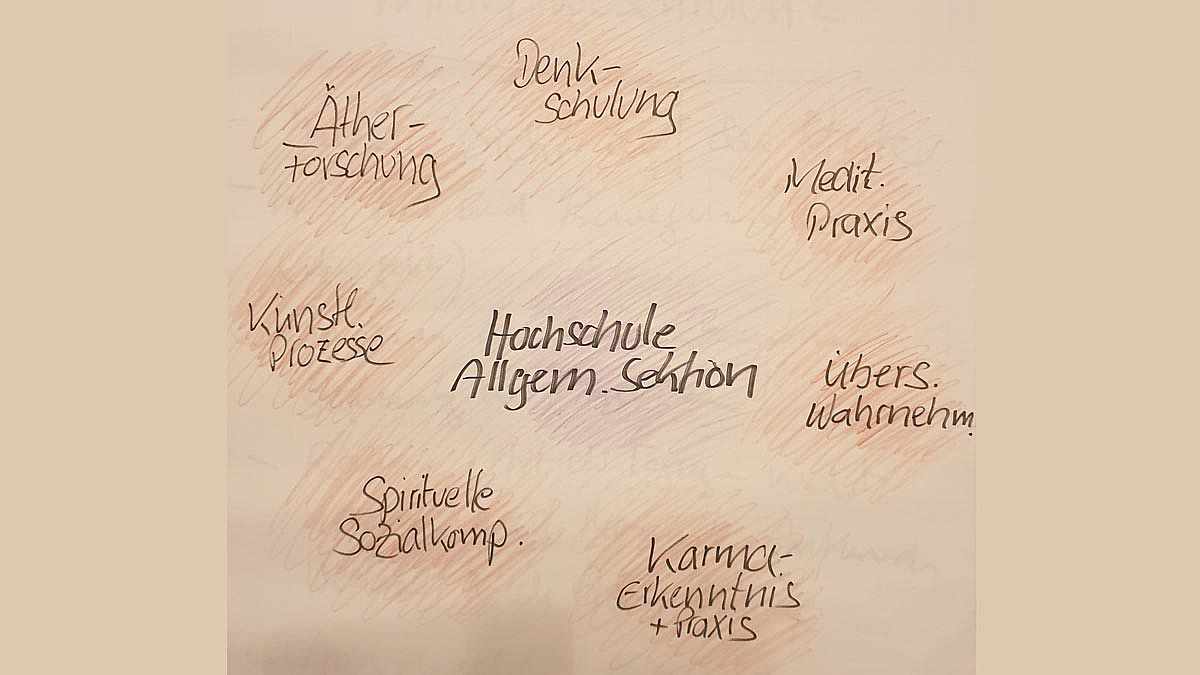 Denk-
schulung
Äther-
forschung
Medit.
Praxis
Künstl.
Prozesse
Hochschule
Allgem. Sektion
Übers.
Wahrnehm.
Spirituelle
Sozialkomp.
Karma-
Erkenntnis
+ Praxis